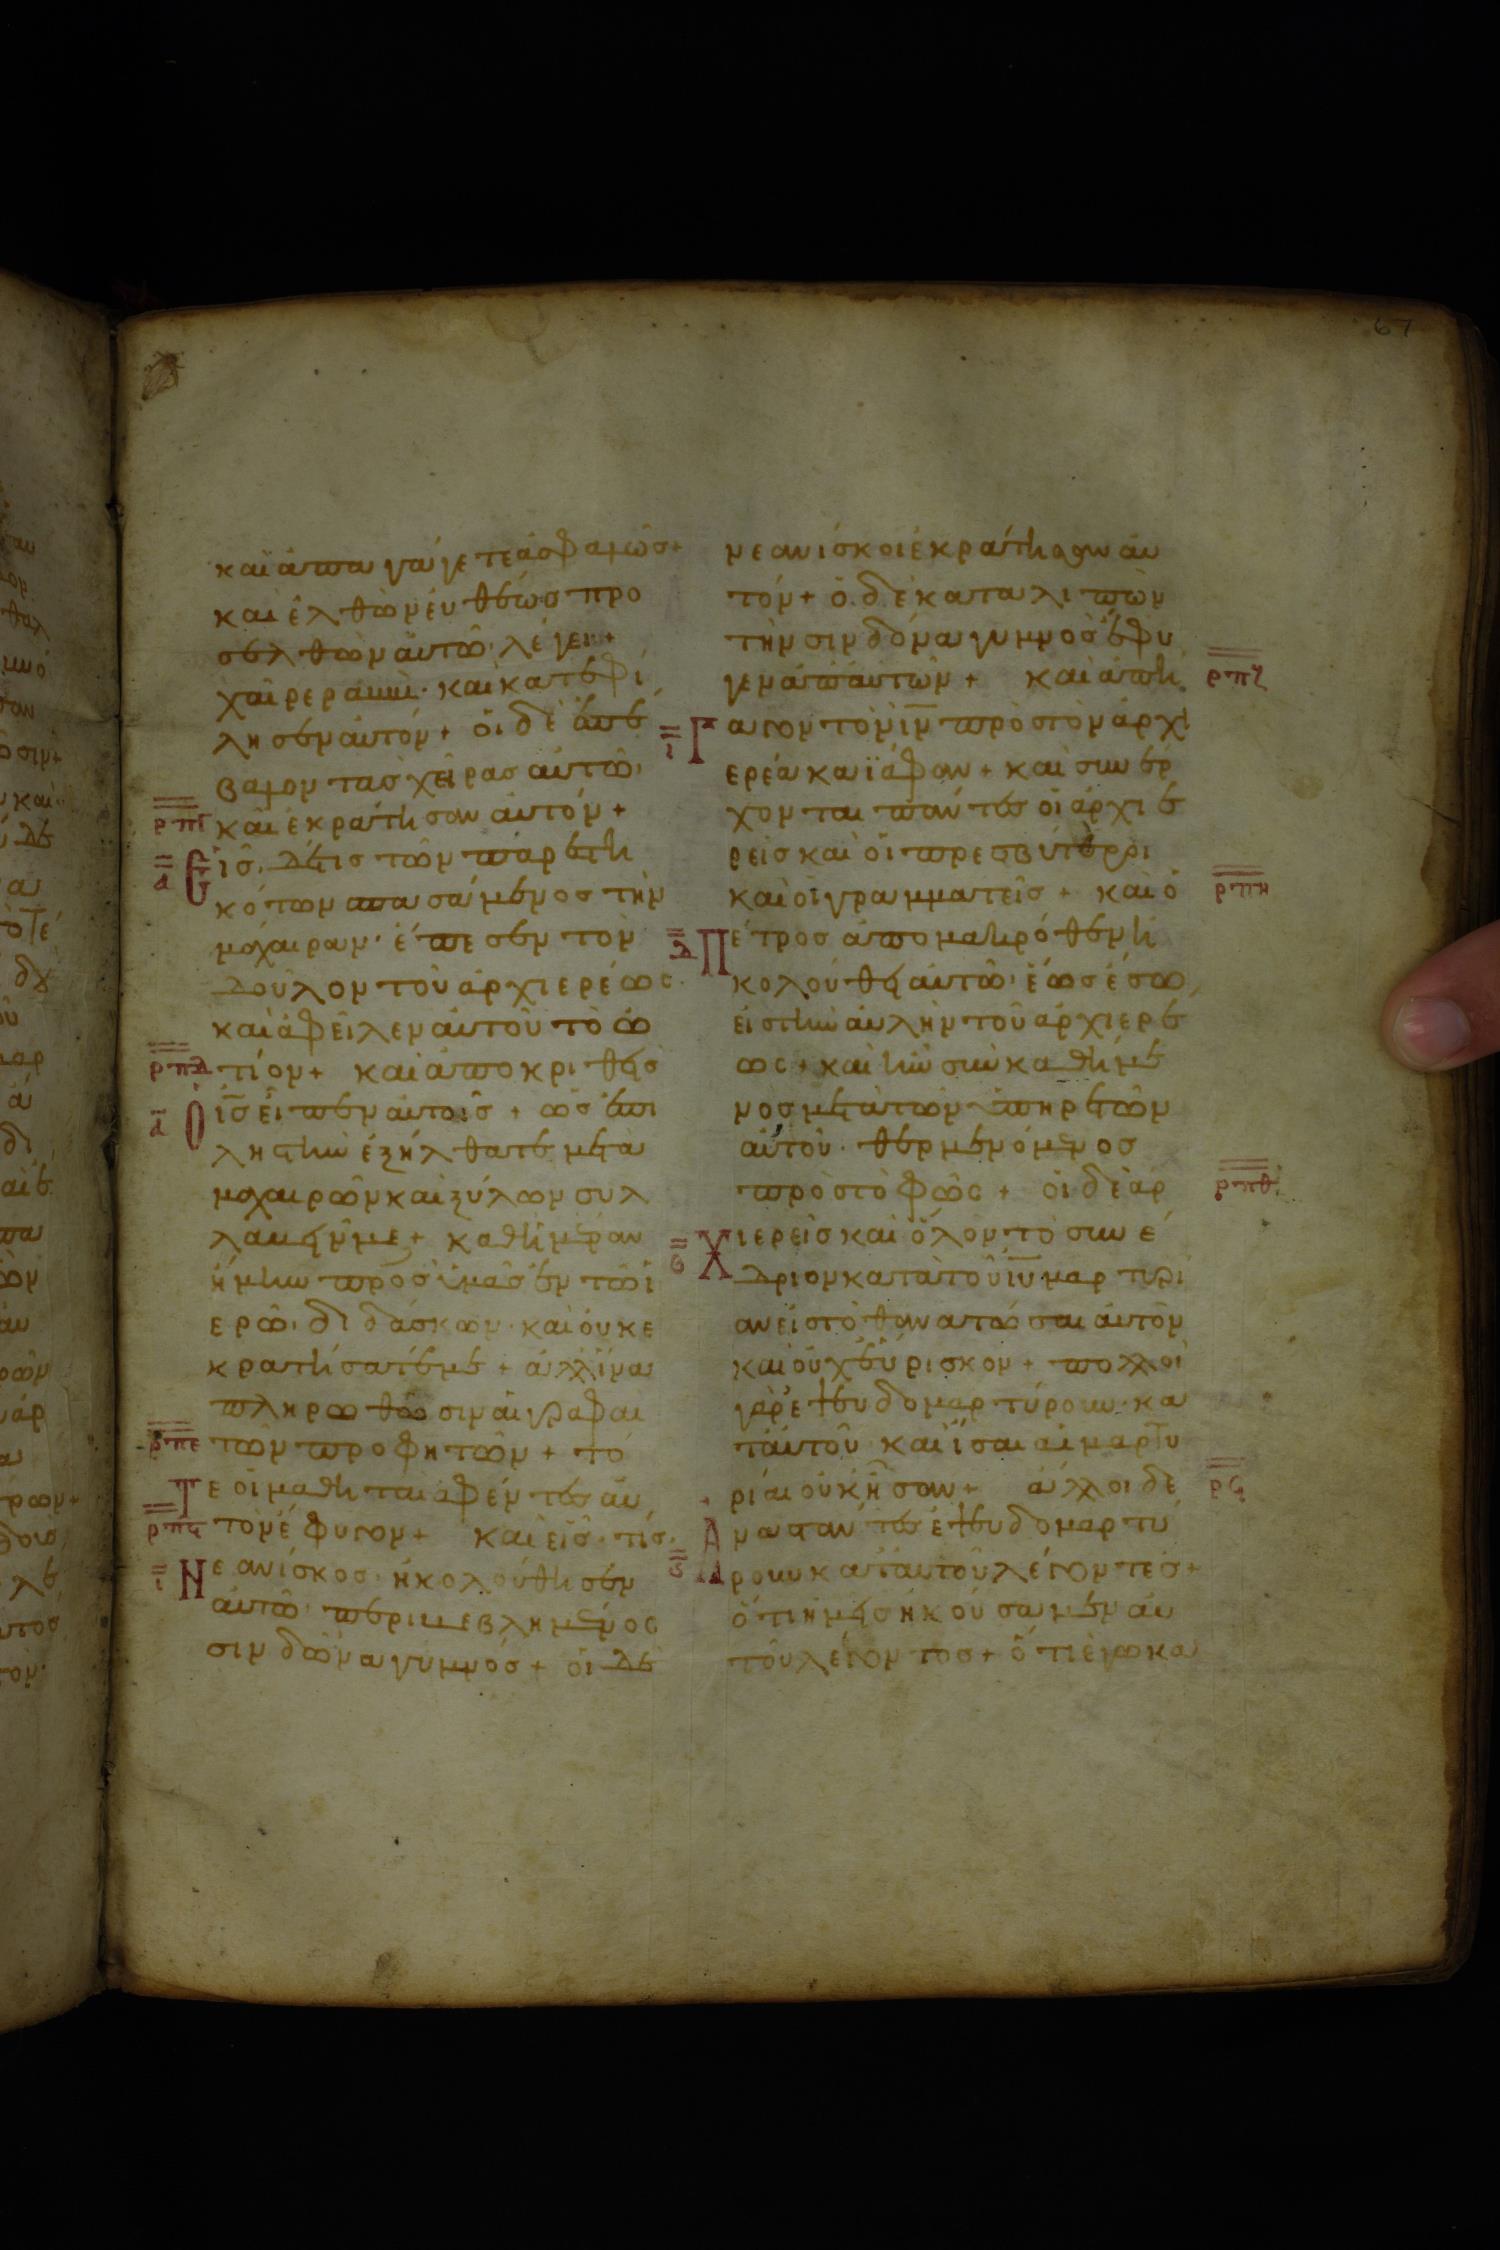 67
καὶ ἀπαγάγετε ἀσφαλῶσ+
καὶ ἐλθὼν ἐυθέως προ
σελθὼν ἀυτῶ· λέγει+
χαῖρε ραββὶ· καὶ κατεφί
λησεν ἀυτόν+ ὁι δὲ ἐπέ
βαλον τὰσ χεῖρασ ἀυτῶ,
ρπγ καὶ ἐκράτησαν ἀυτόν+
α Εἱσ δέ τισ τῶν παρεστη
κότων σπασάμενοσ τὴν
μάχαιραν· ἔπεσεν τὸν
δοῦλον τοῦ ἀρχιερέωσ·
καὶ ἀφεῖλεν ἀυτοῦ τὸ ὠ
ρπδ τίον+ καὶ ἀποκριθεὶσ
α Ὁ ι̅σ̅ εἶπεν ἀυτοῖσ+ ὡσ ἐπὶ
ληστὴν ἐξήλθατε μετὰ
μαχαιρῶν καὶ ξύλων συλ
λαβεῖν με+ καθημέραν
ἤμην πρὸσ ὑμᾶσ ἐν τῶ ἱ
ερῶ, διδάσκων· καὶ ὀυκ ἐ
κρατήσατέ με+ ἀλλ ἵνα
πληρωθῶσιν ἁι γραφαὶ
ρπε τῶν προφητῶν+ τό
Τε ὁι μαθηταὶ ἀφέντεσ ἀυ
ρπϛ τὸν ἔφυγον+ καὶ εἷσ· τίσ·
ι Νεανίσκοσ· ἠκολούθησεν
ἀυτῶ· περιβεβλημένοσ
σινδῶνα γυμνόσ+ ὁι δὲ
νεανίσκοι ἐκράτησαν ἀυ
τόν+ ὁ δὲ καταλιπὼν
τὴν σινδόνα γυμνὸσ ἔφυ
γεν ἀπ ἀυτῶν+ καὶ ἀπή ρπζ
ι Γαγον τὸν ι̅ν̅ πρὸσ τὸν ἀρχι
ερέα καϊάφαν+ καὶ συνέρ
χονται πάντεσ ὁι ἀρχιε
ρεῖσ καὶ ὁι πρεσβύτεροι
καὶ ὁι γραμματεῖσ+ καὶ ὁ ρπη
δ Πέτροσ ἀπὸ μακρόθεν ἠ
κολούθει ἀυτῶ· ἕωσ ἔσω
εἰσ τὴν ἀυλὴν τοῦ ἀρχιερέ
ωσ+ καὶ ἦν συνκαθήμε
νοσ μετὰ τῶν ὑπηρετῶν
ἀυτοῦ· θερμενόμενοσ
πρὸσ τὸ φῶσ+ ὁι δὲ ἀρ ρπθ
ϛ Χιερεῖσ καὶ ὅλον τὸ συνέ
δριον κατὰ τοῦ ι̅υ̅ μαρτυρί
αν εἰσ τὸ θανατῶσαι ἀυτὸν
καὶ ὀυχ ἕυρισκον+ πολλοὶ
γὰρ ἐψευδομαρτύρουν· κα
τ ἀυτοῦ· καὶ ἴσαι ἁι μαρτυ
ρίαι ὀυκ ἦσαν+ ἄλλοι δε ρϟ
ϛ Αναστάντεσ ἐψευδομαρτύ
ρουν κατ ἀυτοῦ λέγοντεσ+
ὅτι ἡμεῖσ ἠκούσαμεν ἀυ
τοῦ λέγοντοσ+ ὅτι ἐγὼ κα